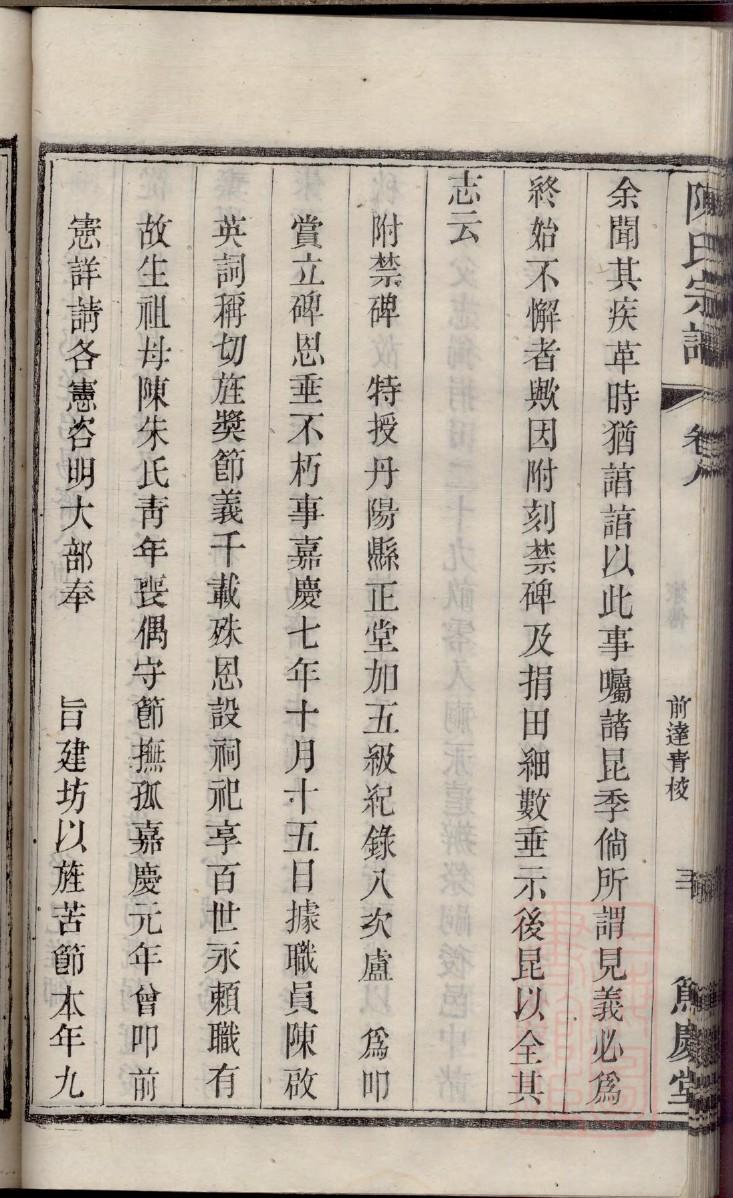 陳氏宗譜 卷八 前達青棱 篤慶堂
余聞其疾革時猶諳諳以此事囑諸昆季倘所謂見義必為
終始不懈者歟因附刻禁碑及捐田細數垂示後昆以全其
志云
附禁碑 特授丹陽縣正堂加五級紀錄八次盧 為叩
賞立碑恩垂不朽事嘉慶七年十月十五日據職員陳啟
英詞稱切旌獎節義千載殊恩設祠祀享百世永賴職有
故生祖母陳朱氏青年喪偶守節撫孤嘉慶元年曾叩前
憲詳請各憲咨明大部奉 旨建坊以旌苦節本年九